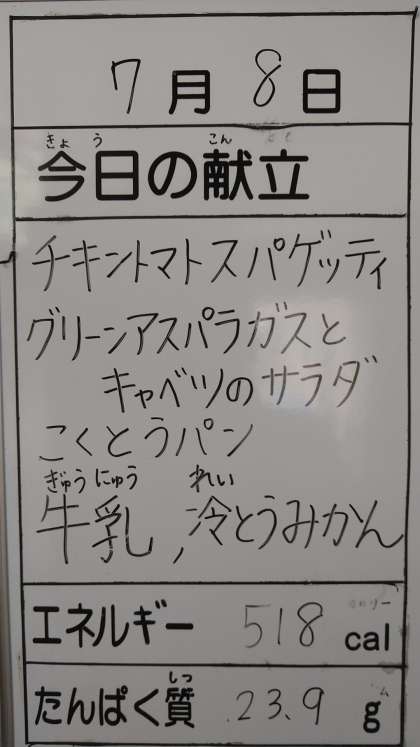 7月8日
きょう こん
今日の献立
チキントマトスパゲッティ
グリーンアスパラガスと
キャベツのサラダ
こくとうパン
ぎゅうにゅう れい
牛乳,冷とうみかん
エネルギー 518 cal
しつ
たんぱく質 23.9 g